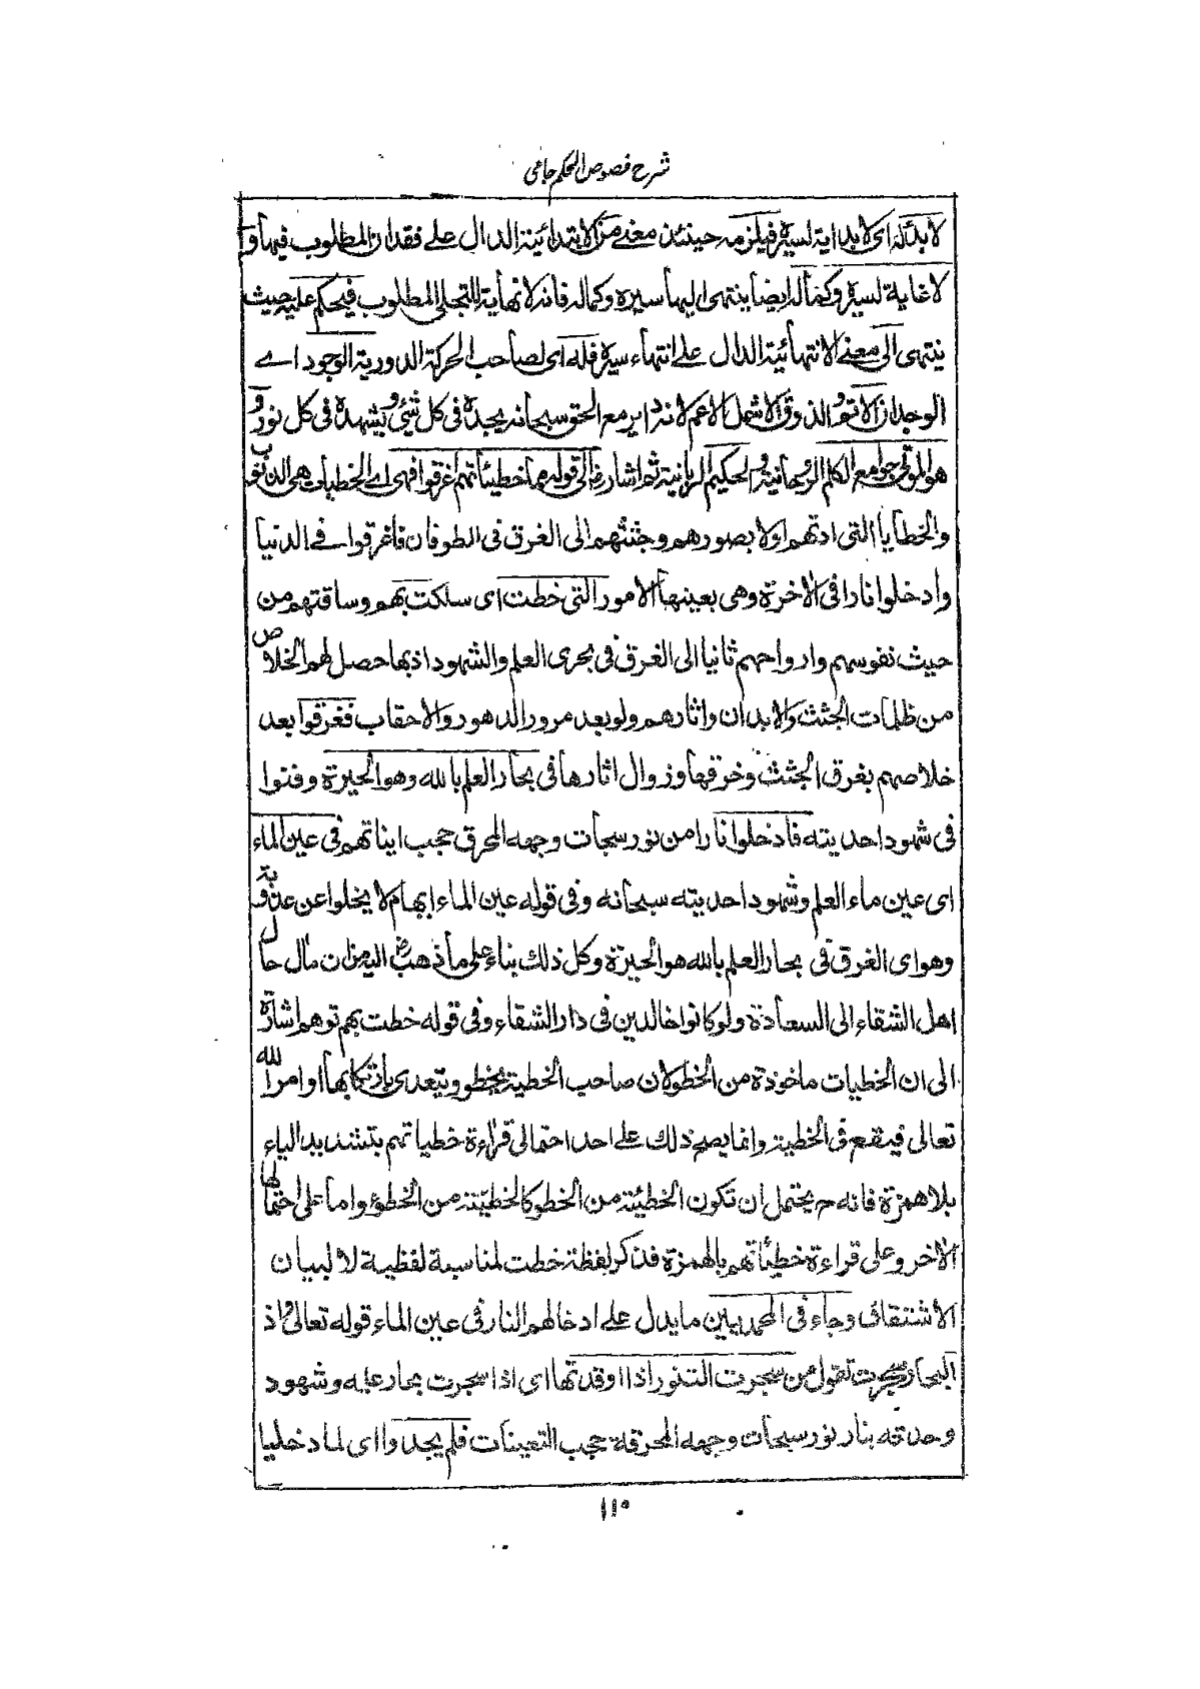 شرح فصوص الحكم جامی
لا بدٔله ای لا بداية لسيره فيلزمه حينئذ معنے من الابتدائية الدال علے فقدان المطلوب فيها و
لا غاية لسيره وكماله ايضا ينتهی اليها سيره وكماله فانه لا نهاية للتجلی المطلوب فيحكم عليه حيث
ينتهی الی معنے الانتهائية الدال علے انتهاء سيره فله ای لصاحب الحركة الدورية الوجود اے
الوجدان الاتم والذوق الاشمل الاعم لانه داير مع الحق سبحانه يجده فی كل شئ ويشهده فی كل نور و
هو الموتی جوامع الكلم الروحانية والحكيم الربانية ثم اشار رض الی قوله مما خطيئاتهم اغرقوا فهی اے الخطيات هی الذنوب
والخطايا التی ادتهم اولا بصورهم وجثثهم الی الغرق فی الطوفان فاغرقوا فے الدنيا
وادخلوا نارا فی الاخرة وهی بعينها الامور التی خطت ای سلكت بهم وساقتهم من
حيث نفوسهم وارواحهم ثانيا الی الغرق فی بحری العلم والشهود اذ بها حصل لهم الخلاص
من ظلمات الجثث والابدان واثارهم ولو بعد مرور الدهور والاحقاب فغرقوا بعد
خلاصهم بغرق الجثث وخرقها وزوال اثارها فی بحار العلم بالله وهو الحيرة وفنوا
فی شهود احديته فادخلوا نارا من نور سبحات وجهه المحرق حجب انياتهم فی عين الماء
ای عين ماء العلم وشهود احديته سبحانه وفی قوله عين الماء ابهام لا يخلوا عن عذوبة
وهوای الغرق فی بحار العلم بالله هو الحيرة وكل ذلك بناء علی ما ذهب رض اليه من ان مآل حال
اهل الشقاء الی السعادة ولو كانوا خالدين فی دار الشقاء وفی قوله خطت بهم توهم اشارة
الی ان الخطيات ماخوذة من الخطو لان صاحب الخطية يخطو ويتعدی بارتكابها اوامر الله
تعالی فيقع فی الخطية وانما يصح ذلك علے احد احتمالی قراءة خطياتهم بتشديد الياء
بلا همزة فانه ح يحتمل ان تكون الخطيئة من الخطو كالخطيّة من الخطوء واما علی احتمالها
الاخر وعلی قراءة خطيئاتهم بالهمزة فذكر لفظة خطت لمناسبة لفظية لا لبيان
الاشتقاق وجاء فی المحمديين ما يدل علے ادخالهم النار فی عين الماء قوله تعالی واذ
البحار سجرت تقول من سجرت التنور اذا اوقدتها ای اذا سجرت بحار علمه وشهود
وحدته بنار نور سبحات وجهه المحرقة حجب التعينات فلم يجدوا ای لما دخلوا
١١٥